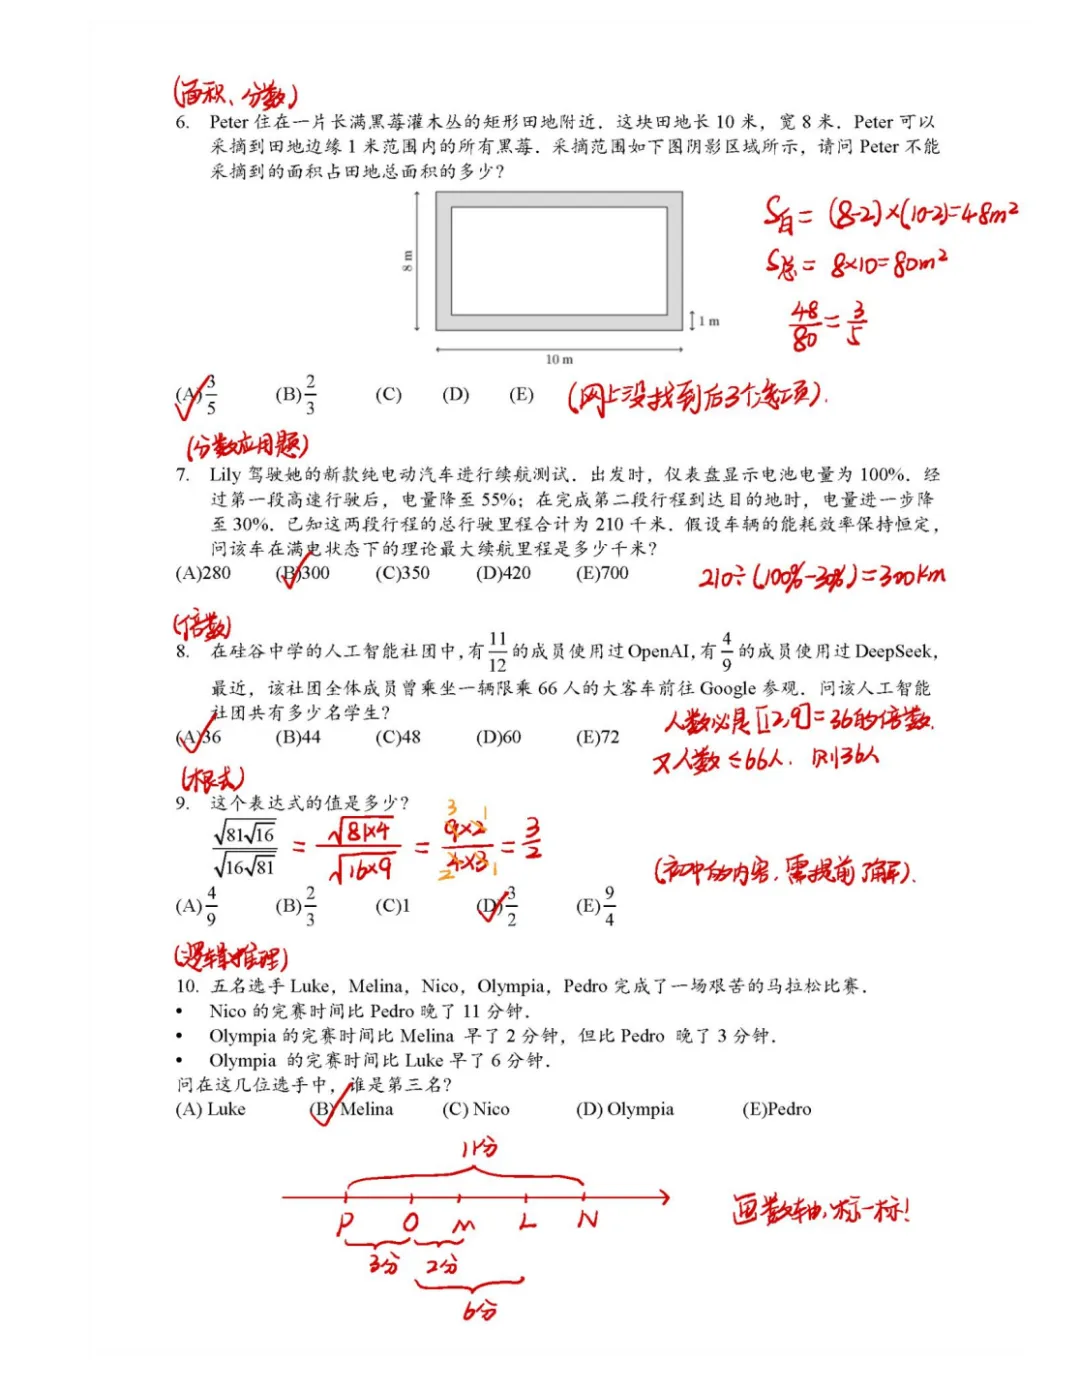 (面积、分数)
6. Peter 住在一片长满黑莓灌木丛的矩形田地附近．这块田地长 10 米，宽 8 米．Peter 可以
采摘到田地边缘 1 米范围内的所有黑莓．采摘范围如下图阴影区域所示，请问 Peter 不能
采摘到的面积占田地总面积的多少？
8 m
1 m
10 m
S白 = (8-2)×(10-2)=48m²
S总 = 8×10=80m²
48/80 = 3/5
(A) 3/5 (B) 2/3 (C) (D) (E) (网上没找到后3个选项).
(分数应用题)
7. Lily 驾驶她的新款纯电动汽车进行续航测试．出发时，仪表盘显示电池电量为 100%．经
过第一段高速行驶后，电量降至 55%；在完成第二段行程到达目的地时，电量进一步降
至 30%．已知这两段行程的总行驶里程合计为 210 千米．假设车辆的能耗效率保持恒定，
问该车在满电状态下的理论最大续航里程是多少千米？
(A)280 (B)300 (C)350 (D)420 (E)700
210÷(100%-30%)=300km
(倍数)
8. 在硅谷中学的人工智能社团中，有 11/12 的成员使用过 OpenAI，有 4/9 的成员使用过 DeepSeek，
最近，该社团全体成员曾乘坐一辆限乘 66 人的大客车前往 Google 参观．问该人工智能
社团共有多少名学生？
(A)36 (B)44 (C)48 (D)60 (E)72
人数必是[12,9]=36的倍数.
又人数≤66人. 则36人
(根式)
9. 这个表达式的值是多少？
√(81√16) / √(16√81) = √(81×4) / √(16×9) = 9×2 / 4×3 = 3/2
3 1
2 1
(初中的内容,需提前了解).
(A) 4/9 (B) 2/3 (C)1 (D) 3/2 (E) 9/4
(逻辑推理)
10. 五名选手 Luke，Melina，Nico，Olympia，Pedro 完成了一场艰苦的马拉松比赛．
• Nico 的完赛时间比 Pedro 晚了 11 分钟．
• Olympia 的完赛时间比 Melina 早了 2 分钟，但比 Pedro 晚了 3 分钟．
• Olympia 的完赛时间比 Luke 早了 6 分钟．
问在这几位选手中，谁是第三名？
(A) Luke (B) Melina (C) Nico (D) Olympia (E)Pedro
11分
P O M L N
3分 2分
6分
画数轴,标一标!